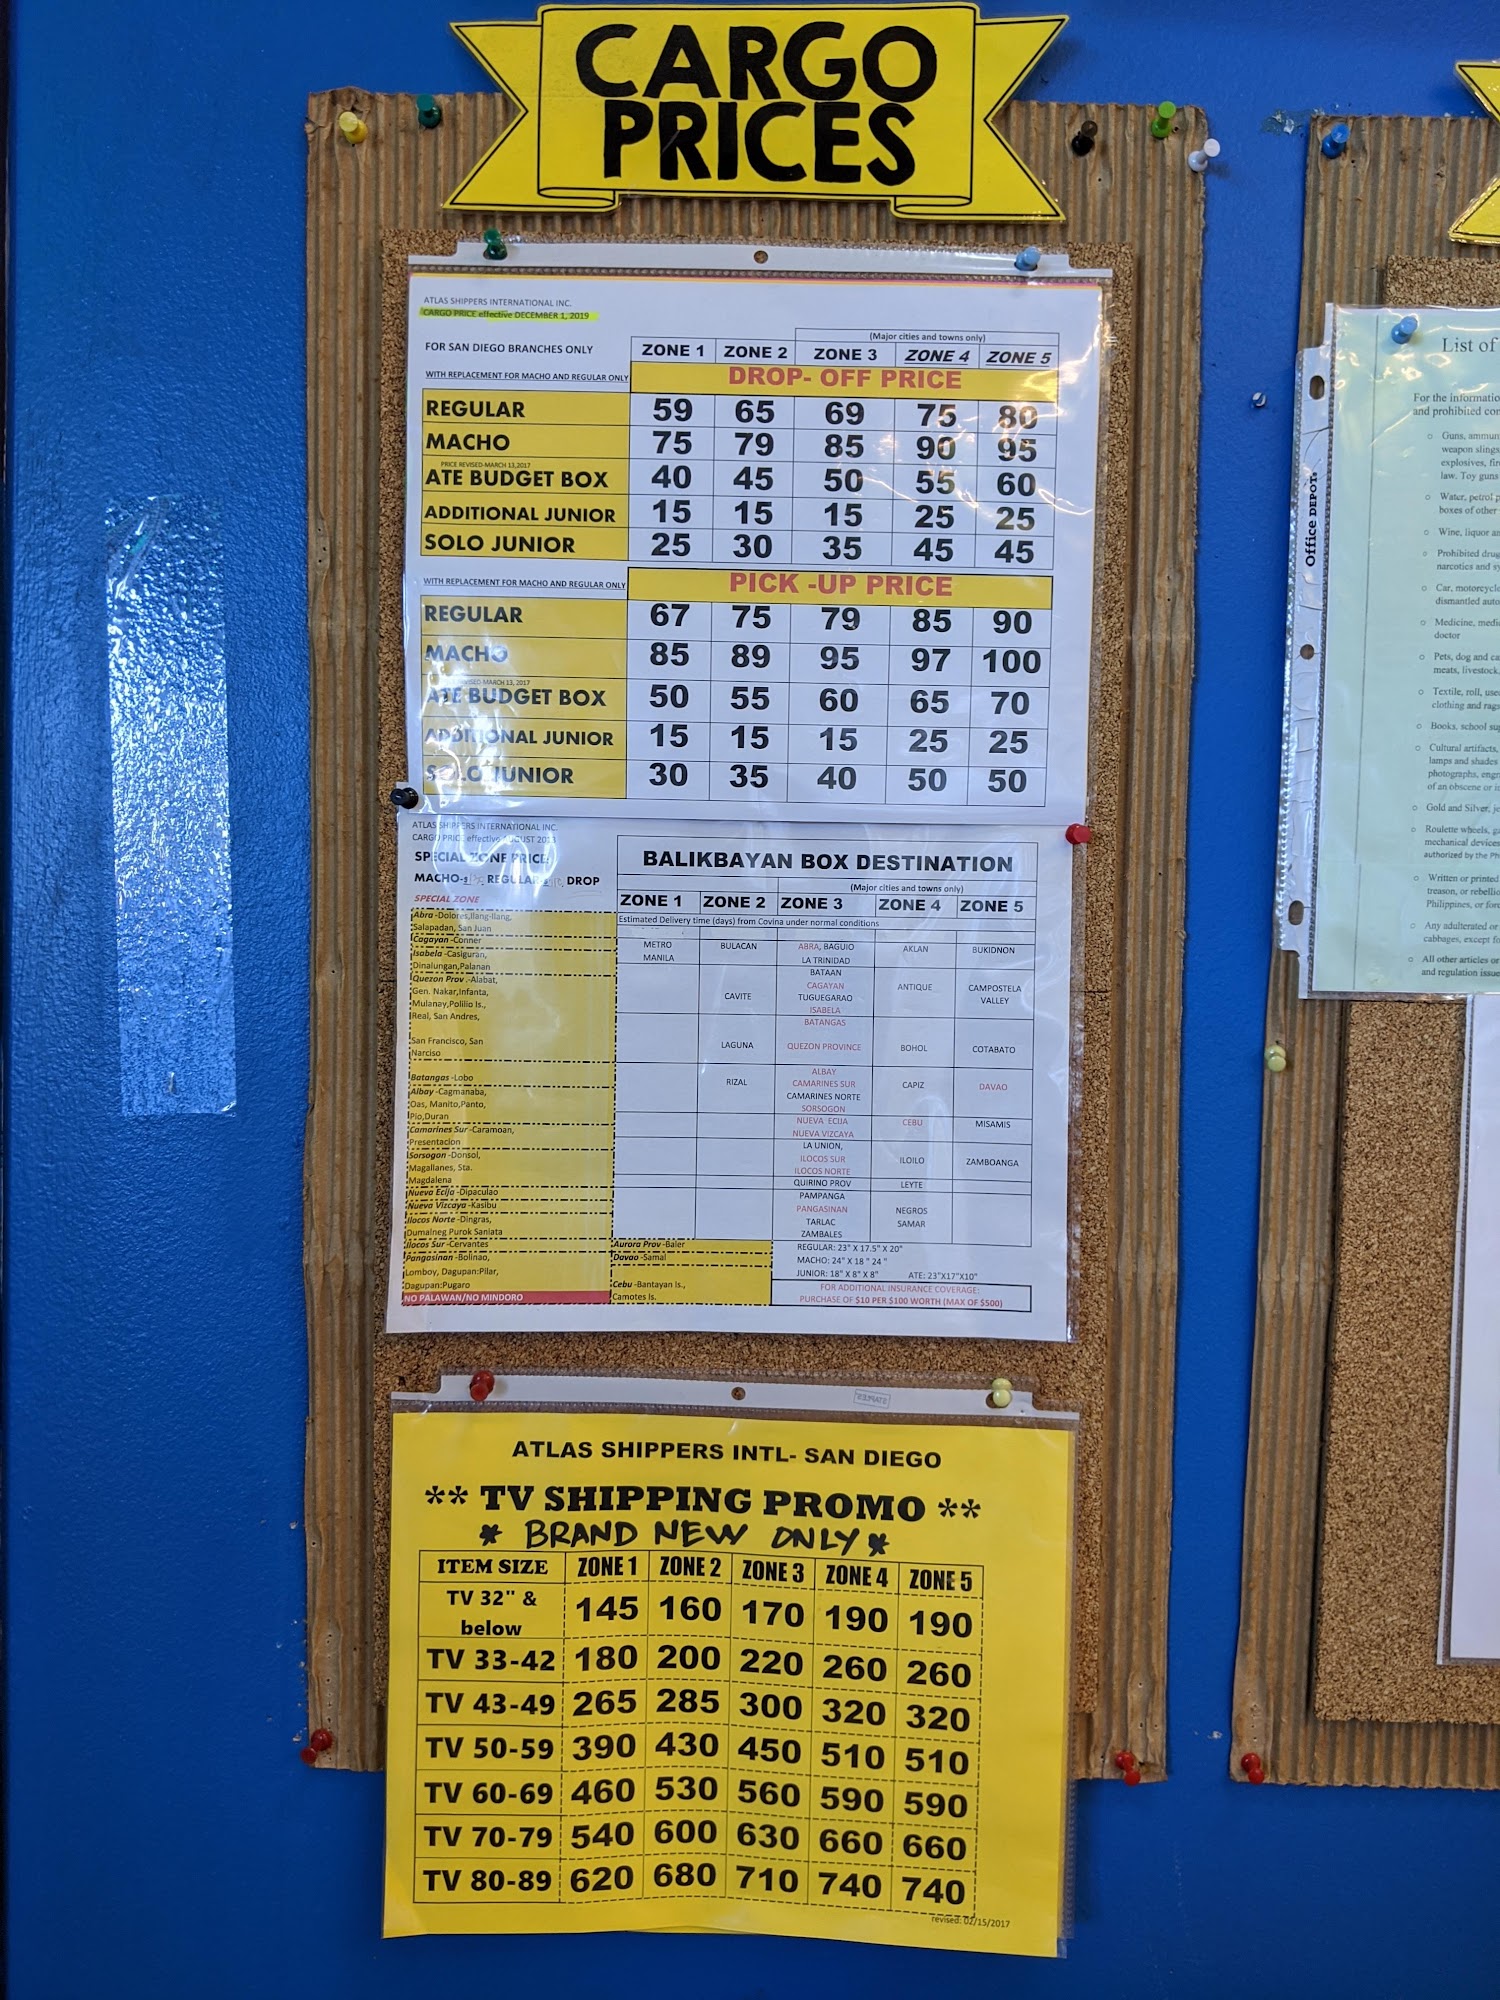 CARGO
PRICES
ATLAS SHIPPERS INTERNATIONAL INC.
CARGO PRICE effective DECEMBER 1, 2019
(Major cities and towns only)
FOR SAN DIEGO BRANCHES ONLY ZONE 1 ZONE 2 ZONE 3 ZONE 4 ZONE 5
WITH REPLACEMENT FOR MACHO AND REGULAR ONLY DROP- OFF PRICE
REGULAR 59 65 69 75 80
MACHO 75 79 85 90 95
PRICE REVISED-MARCH 13,2017
ATE BUDGET BOX 40 45 50 55 60
ADDITIONAL JUNIOR 15 15 15 25 25
SOLO JUNIOR 25 30 35 45 45
WITH REPLACEMENT FOR MACHO AND REGULAR ONLY PICK -UP PRICE
REGULAR 67 75 79 85 90
MACHO 85 89 95 97 100
MARCH 13, 2017
ATE BUDGET BOX 50 55 60 65 70
ADDITIONAL JUNIOR 15 15 15 25 25
SOLO JUNIOR 30 35 40 50 50
ATLAS SHIPPERS INTERNATIONAL INC.
CARGO PRICE effective AUGUST
SPECIAL ZONE PRICE
MACHO- REGULAR- DROP
SPECIAL ZONE
Abra -Dolores,Ilang-Ilang,
Salapadan, San Juan
Cagayan -Conner
Isabela -Casiguran,
Dinalungan,Palanan
Quezon Prov .-Alabat,
Gen. Nakar,Infanta,
Mulanay,Polilio Is.,
Real, San Andres,
San Francisco, San
Narciso
Batangas -Lobo
Albay -Cagmanaba,
Oas, Manito,Panto,
Pio,Duran
Camarines Sur -Caramoan,
Presentacion
Sorsogon -Donsol,
Magallanes, Sta.
Magdalena
Nueva Ecija -Dipaculao
Nueva Vizcaya -Kasibu
Ilocos Norte -Dingras,
Dumalneg Purok Saniata
Ilocos Sur -Cervantes
Pangasinan -Bolinao,
Lomboy, Dagupan:Pilar,
Dagupan:Pugaro
NO PALAWAN/NO MINDORO
Aurora Prov -Baler
Davao -Samal
Cebu -Bantayan Is.,
Camotes Is.
BALIKBAYAN BOX DESTINATION
(Major cities and towns only)
ZONE 1 ZONE 2 ZONE 3 ZONE 4 ZONE 5
Estimated Delivery time (days) from Covina under normal conditions
METRO BULACAN ABRA, BAGUIO AKLAN BUKIDNON
MANILA LA TRINIDAD
BATAAN
CAGAYAN ANTIQUE CAMPOSTELA
CAVITE TUGUEGARAO VALLEY
ISABELA
BATANGAS
LAGUNA QUEZON PROVINCE BOHOL COTABATO
ALBAY
RIZAL CAMARINES SUR CAPIZ DAVAO
CAMARINES NORTE
SORSOGON
NUEVA ECIJA CEBU MISAMIS
NUEVA VIZCAYA
LA UNION,
ILOCOS SUR ILOILO ZAMBOANGA
ILOCOS NORTE
QUIRINO PROV LEYTE
PAMPANGA
PANGASINAN NEGROS
TARLAC SAMAR
ZAMBALES
REGULAR: 23" X 17.5" X 20"
MACHO: 24" X 18 " 24 "
JUNIOR: 18" X 8" X 8" ATE: 23"X17"X10"
FOR ADDITIONAL INSURANCE COVERAGE:
PURCHASE OF $10 PER $100 WORTH (MAX OF $500)
ATLAS SHIPPERS INTL- SAN DIEGO
** TV SHIPPING PROMO **
* BRAND NEW ONLY *
ITEM SIZE ZONE 1 ZONE 2 ZONE 3 ZONE 4 ZONE 5
TV 32" &
below 145 160 170 190 190
TV 33-42 180 200 220 260 260
TV 43-49 265 285 300 320 320
TV 50-59 390 430 450 510 510
TV 60-69 460 530 560 590 590
TV 70-79 540 600 630 660 660
TV 80-89 620 680 710 740 740
revised: 02/15/2017
Office DEPOT
List of
For the
and prohibited
Guns,
weapon slings
explosives,
law. Toy guns
Water, petrol
boxes of other
Wine, liquor
Prohibited
narcotics and
Car,
dismantled
Medicine,
doctor
Pets, dog and
meats, livestock,
Textile, roll,
clothing and
Books, school
Cultural artifacts,
lamps and shades
photographs,
of an obscene or
Gold and Silver,
Roulette wheels,
mechanical
authorized by the
Written or printed
treason, or
Philippines, or
Any adulterated or
cabbages, except
All other articles or
and regulation